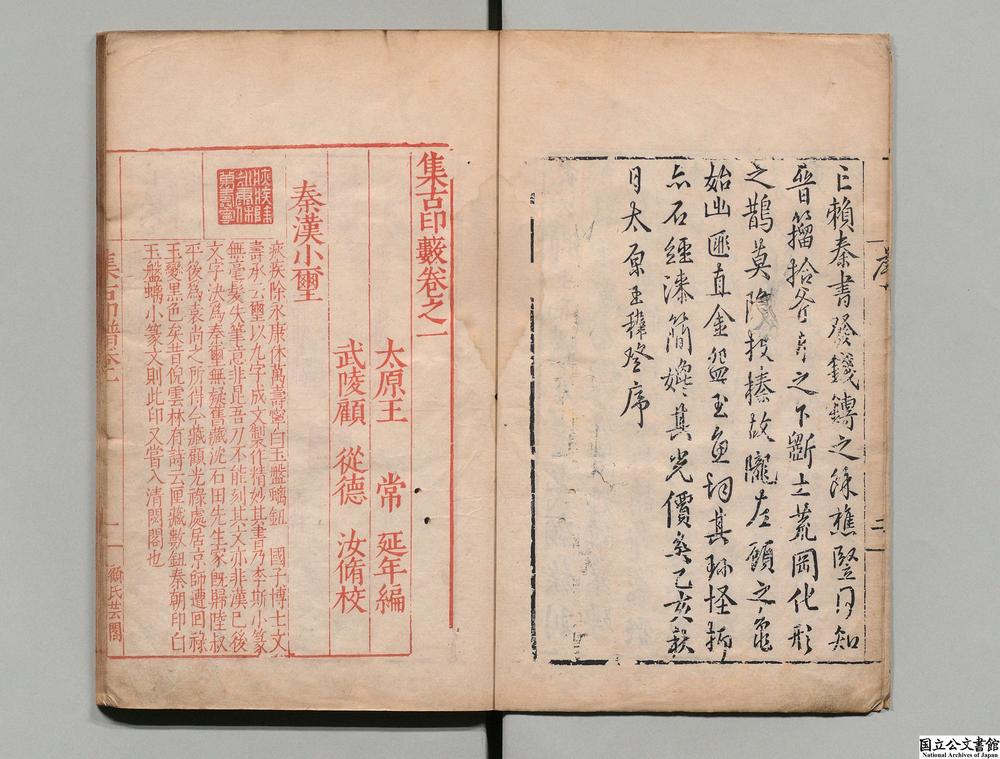 亡賴秦書發錢鎛之餘樵豎月知
晉籀拾斧斤之下斷土荒岡化形
之鵲莫隱投榛故隴左顧之龜
始出匪直金盌玉魚詞其珎怪
亦石經漆簡媲其光價矣乙亥秋
日太原王穉登序
序
二
集古印藪卷之一
太原王 常 延年編
武陵顧 從德 汝脩校
秦漢小璽
疢疾除永康休萬壽寧白玉盤螭鈕 國子博士文
壽承云璽以九字成文製作精妙其書乃李斯小篆
無毫髮失筆意非昆吾刀不能刻其文亦非漢已後
文字決爲秦璽無疑舊藏沈石田先生家旣歸陸叔
平後爲袁尚之所得今藏顧光祿處居京師遭回祿
玉變黑色矣昔倪雲林有詩云匣藏數鈕秦朝印白
玉盤螭小篆文則此印又當入清閟閣也
疢疾除
永康休
萬壽寧
集古印譜卷一
一
顧氏芸閣
国立公文書館
National Archives of Japan